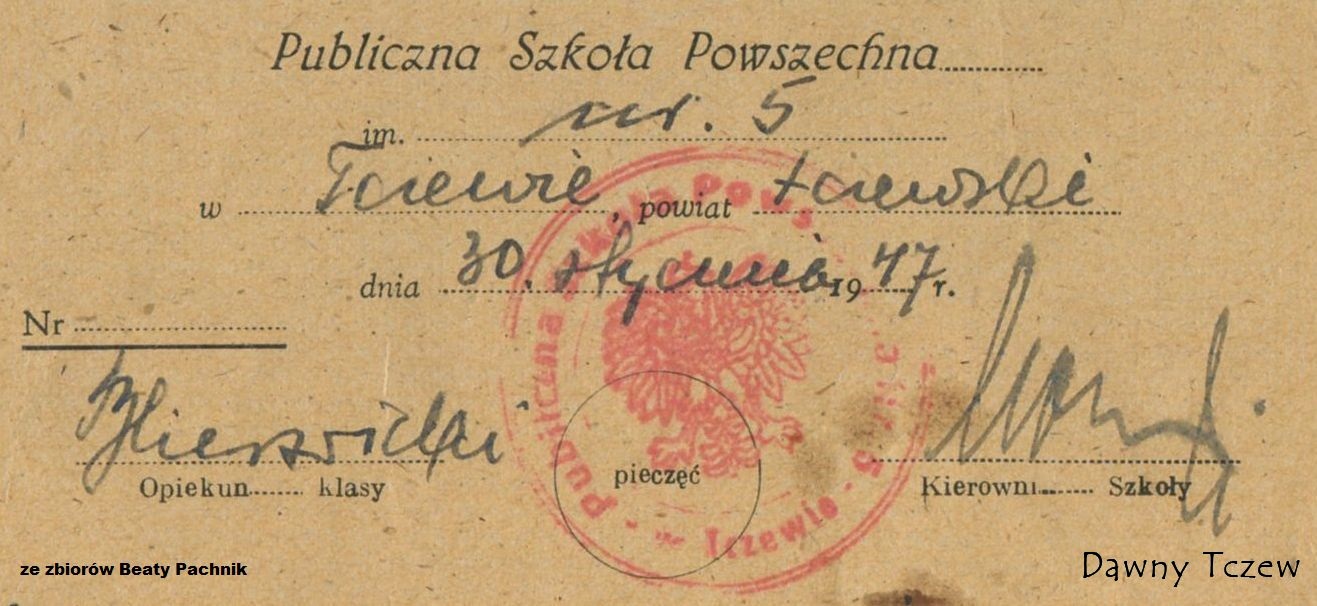 Publiczna Szkoła Powszechna
im. nr. 5
w Tczewie, powiat tczewski
dnia 30. stycznia 1947 r.
Nr
Opiekun klasy
pieczęć
Kierowni Szkoły
Publiczna Szkoła Pows
w Tczewie
ze zbiorów Beaty Pachnik
Dawny Tczew